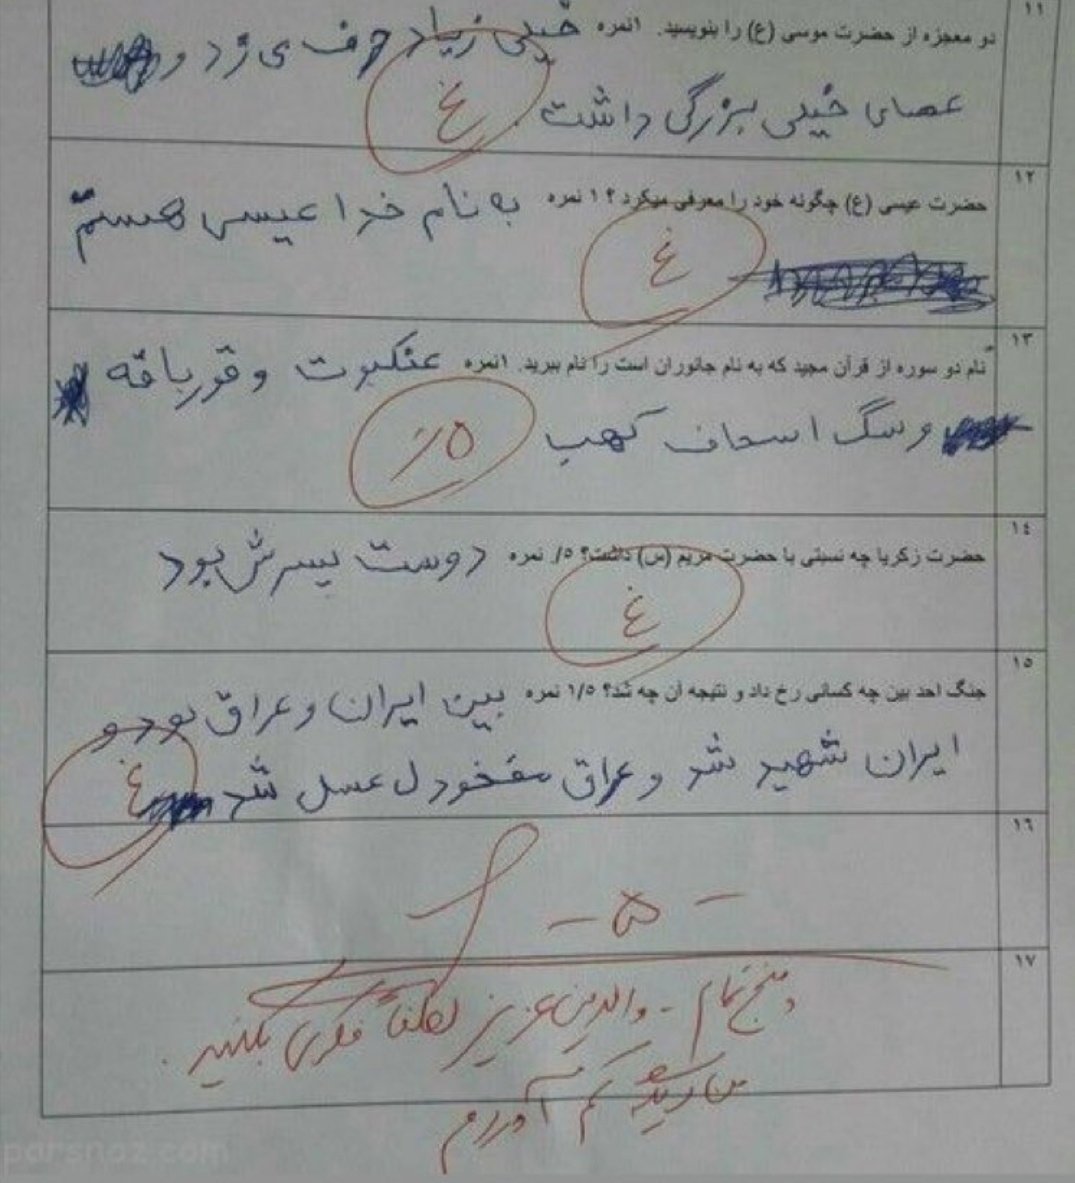 ۱۱
دو معجزه از حضرت موسی (ع) را بنویسید. ۱نمره خیلی زیاد حرف ی زد و
عصای خیلی بزرگی داشت.
غ
۱۲
حضرت عیسی (ع) چگونه خود را معرفی میکرد؟ ۱ نمره به نام خدا عیسی هستم
غ
۱۳
نام دو سوره از قرآن مجید که به نام جانوران است را نام ببرید. ۱نمره عنکبوت و قورباقه
و سگ اسحاف کهب
۵/
۱٤
حضرت زکریا چه نسبتی با حضرت مریم (س) داشت؟ ۵/. نمره دوست پسرش بود
غ
۱۵
جنگ احد بین چه کسانی رخ داد و نتیجه آن چه شد؟ ۱/۵ نمره بین ایران و عراق بود و
ایران شهید شد و عراق مفخود ل عسل شد
غ
۱٦
- ۵ -
۱۷
پنج تمام - والدین عزیز لطفاً فکری بکنید.
من دیگه کم آوردم
parsnaz.com